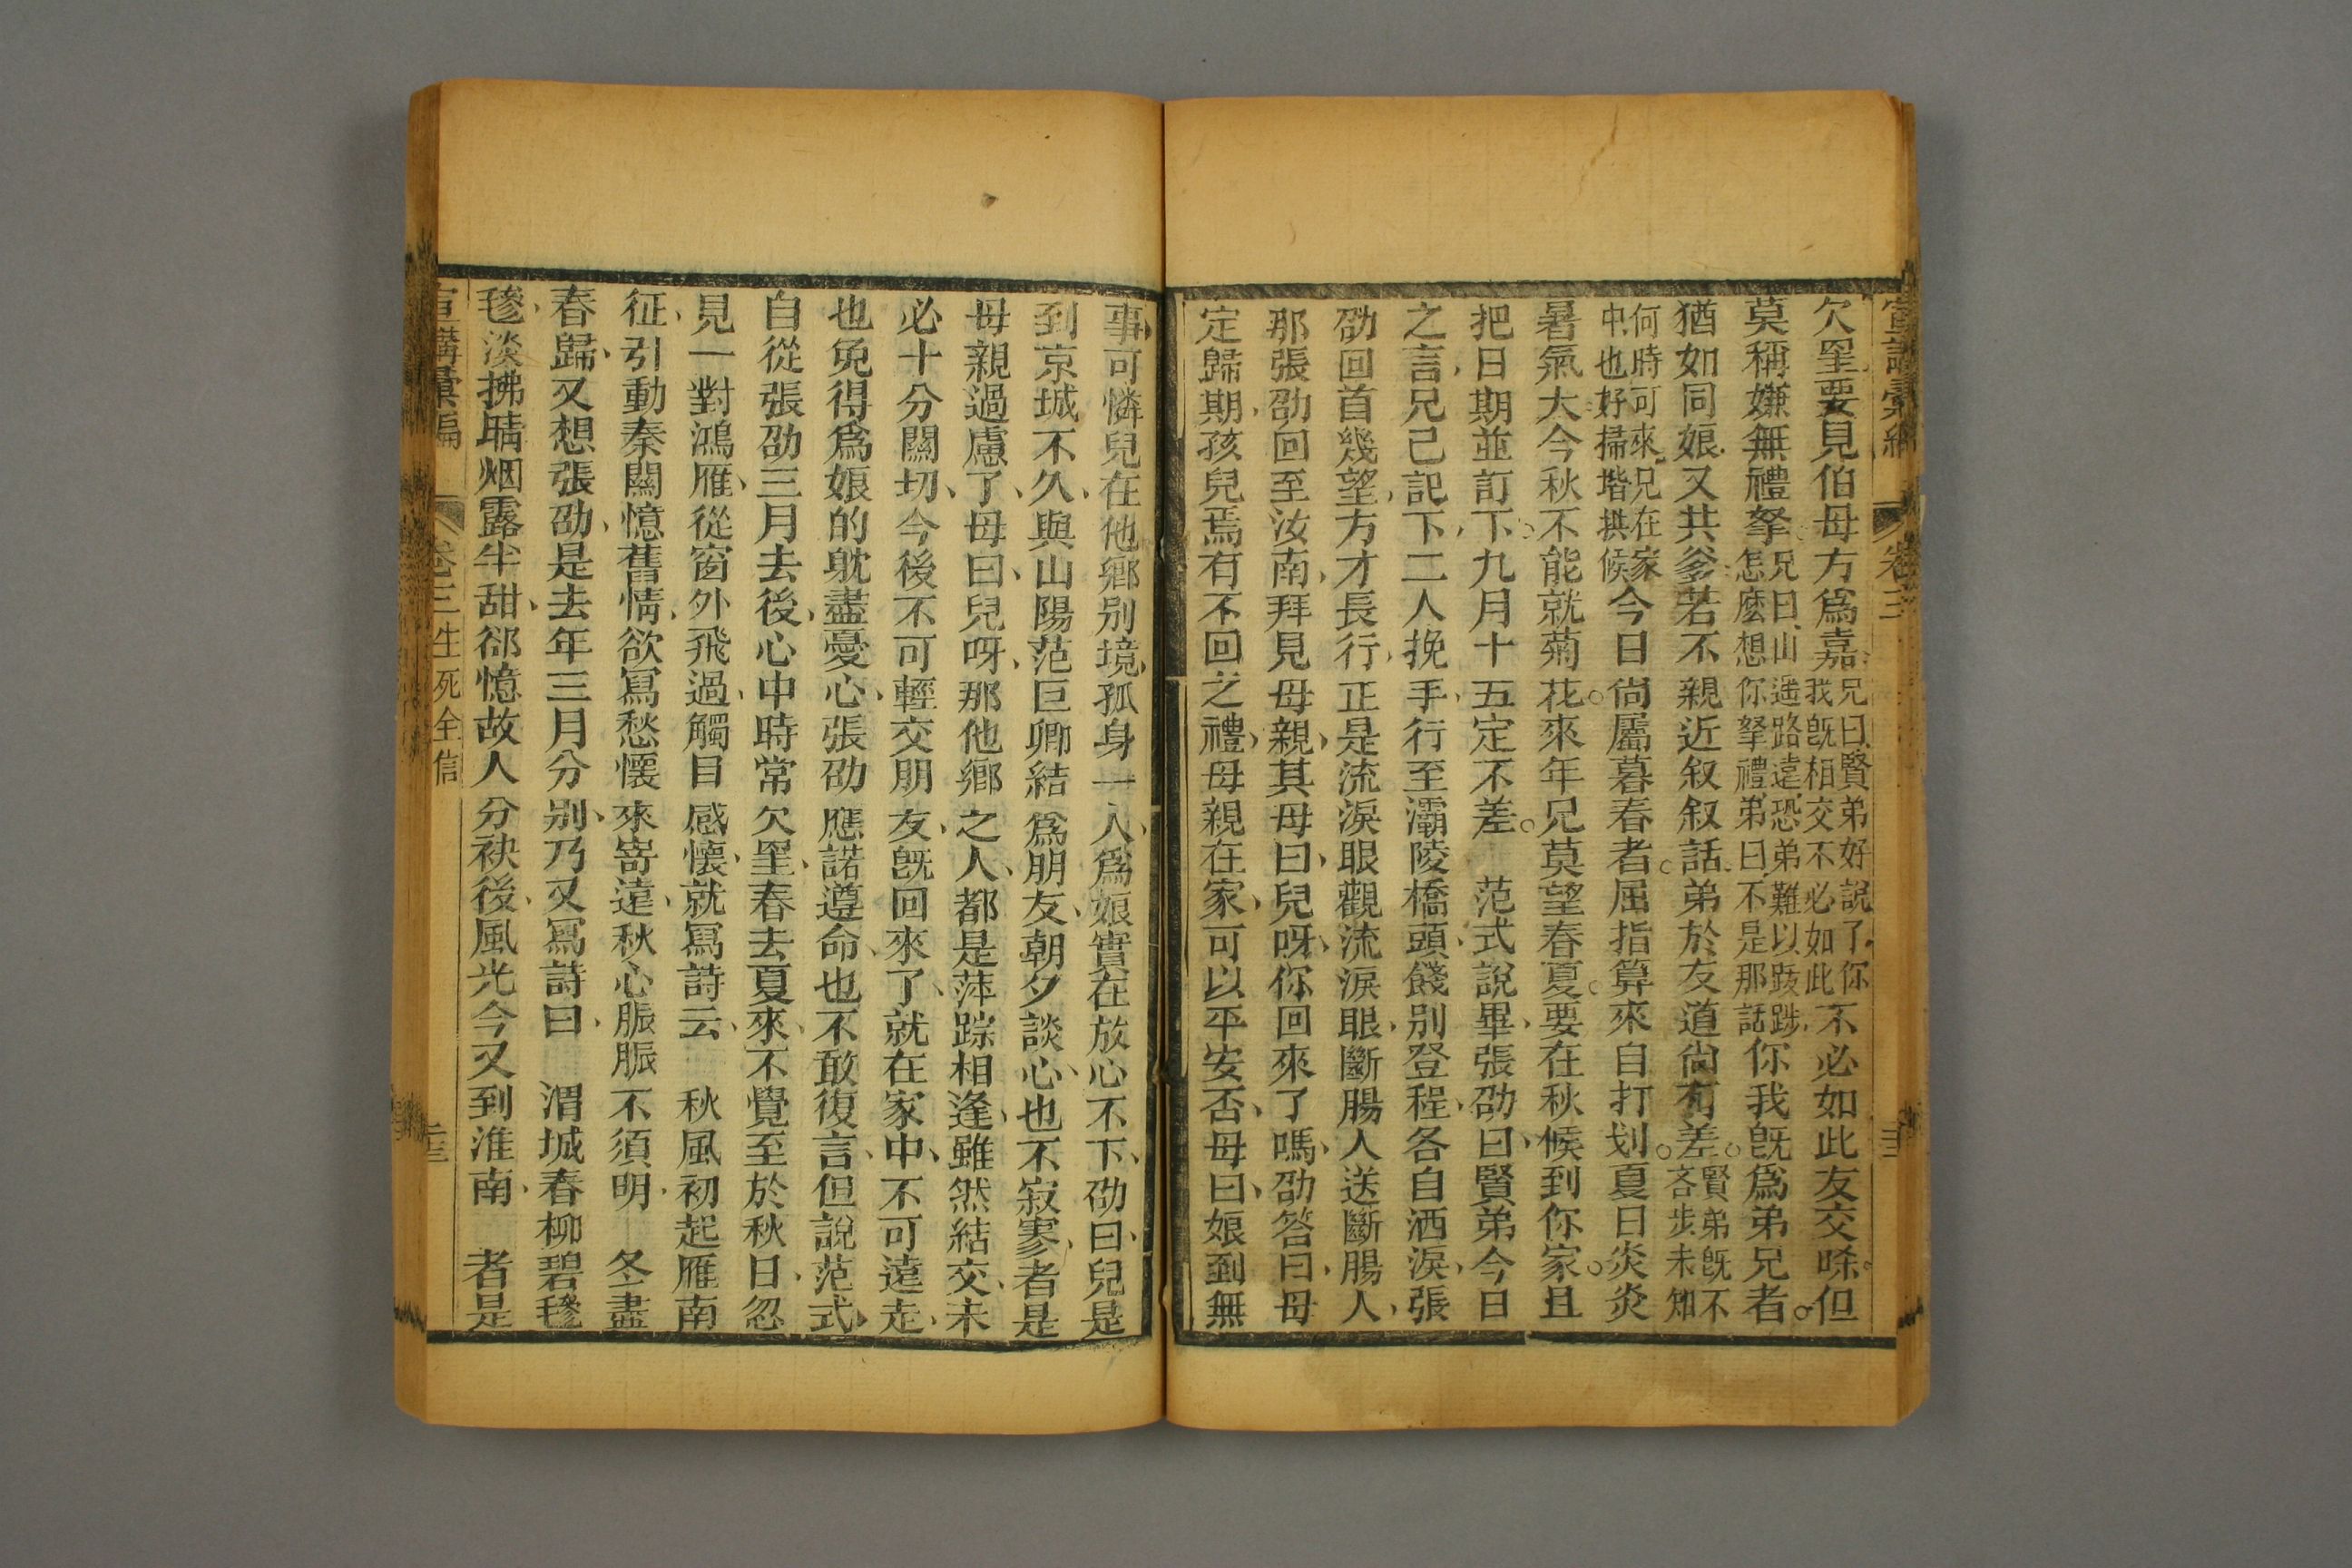 宣講彙編 卷三
欠罣要見伯母方爲嘉兄曰賢弟好說了你我旣相交不必如此不必如此友交㗭但
莫稱嫌無禮拏兄曰山遥路遠恐弟難以跋踄怎麽想你拏禮弟曰不是那話你我旣爲弟兄者
猶如同娘又共爹若不親近叙叙話弟於友道尙有差賢弟旣不吝步未知
何時可來兄在家中也好掃堦拱候今日尙屬暮春者屈指算來自打划夏日炎炎
暑氣大今秋不能就菊花來年兄莫望春夏要在秋候到你家且
把日期並訂下九月十五定不差 范式說畢張劭曰賢弟今日
之言兄己記下二人挽手行至灞陵橋頭餞別登程各自洒淚張
劭回首幾望方才長行正是流淚眼觀流淚眼斷腸人送斷腸人
那張劭回至汝南拜見母親其母曰兒呀你回來了嗎劭答曰母
定歸期孩兒焉有不回之禮母親在家可以平安否母曰娘到無
事可憐兒在他鄉別境孤身一人爲娘實在放心不下劭曰兒是
到京城不久與山陽范巨卿結爲朋友朝夕談心也不寂寥者是
母親過慮了母曰兒呀那他鄉之人都是萍踪相逢雖然結交未
必十分關切今後不可輕交朋友旣回來了就在家中不可遠走
也免得爲娘的躭盡憂心張劭應諾遵命也不敢復言但說范式
自從張劭三月去後心中時常欠罣春去夏來不覺至於秋日忽
見一對鴻雁從窗外飛過觸目感懷就寫詩云 秋風初起雁南
征引動秦關憶舊情欲寫愁懷來寄遠秋心脈脈不須明 冬盡
春歸又想張劭是去年三月分別乃又寫詩曰 渭城春柳碧毿
毿淡拂晴烟露半甜郤憶故人分袂後風光今又到淮南 者是
宣講彙編 卷三 生死全信